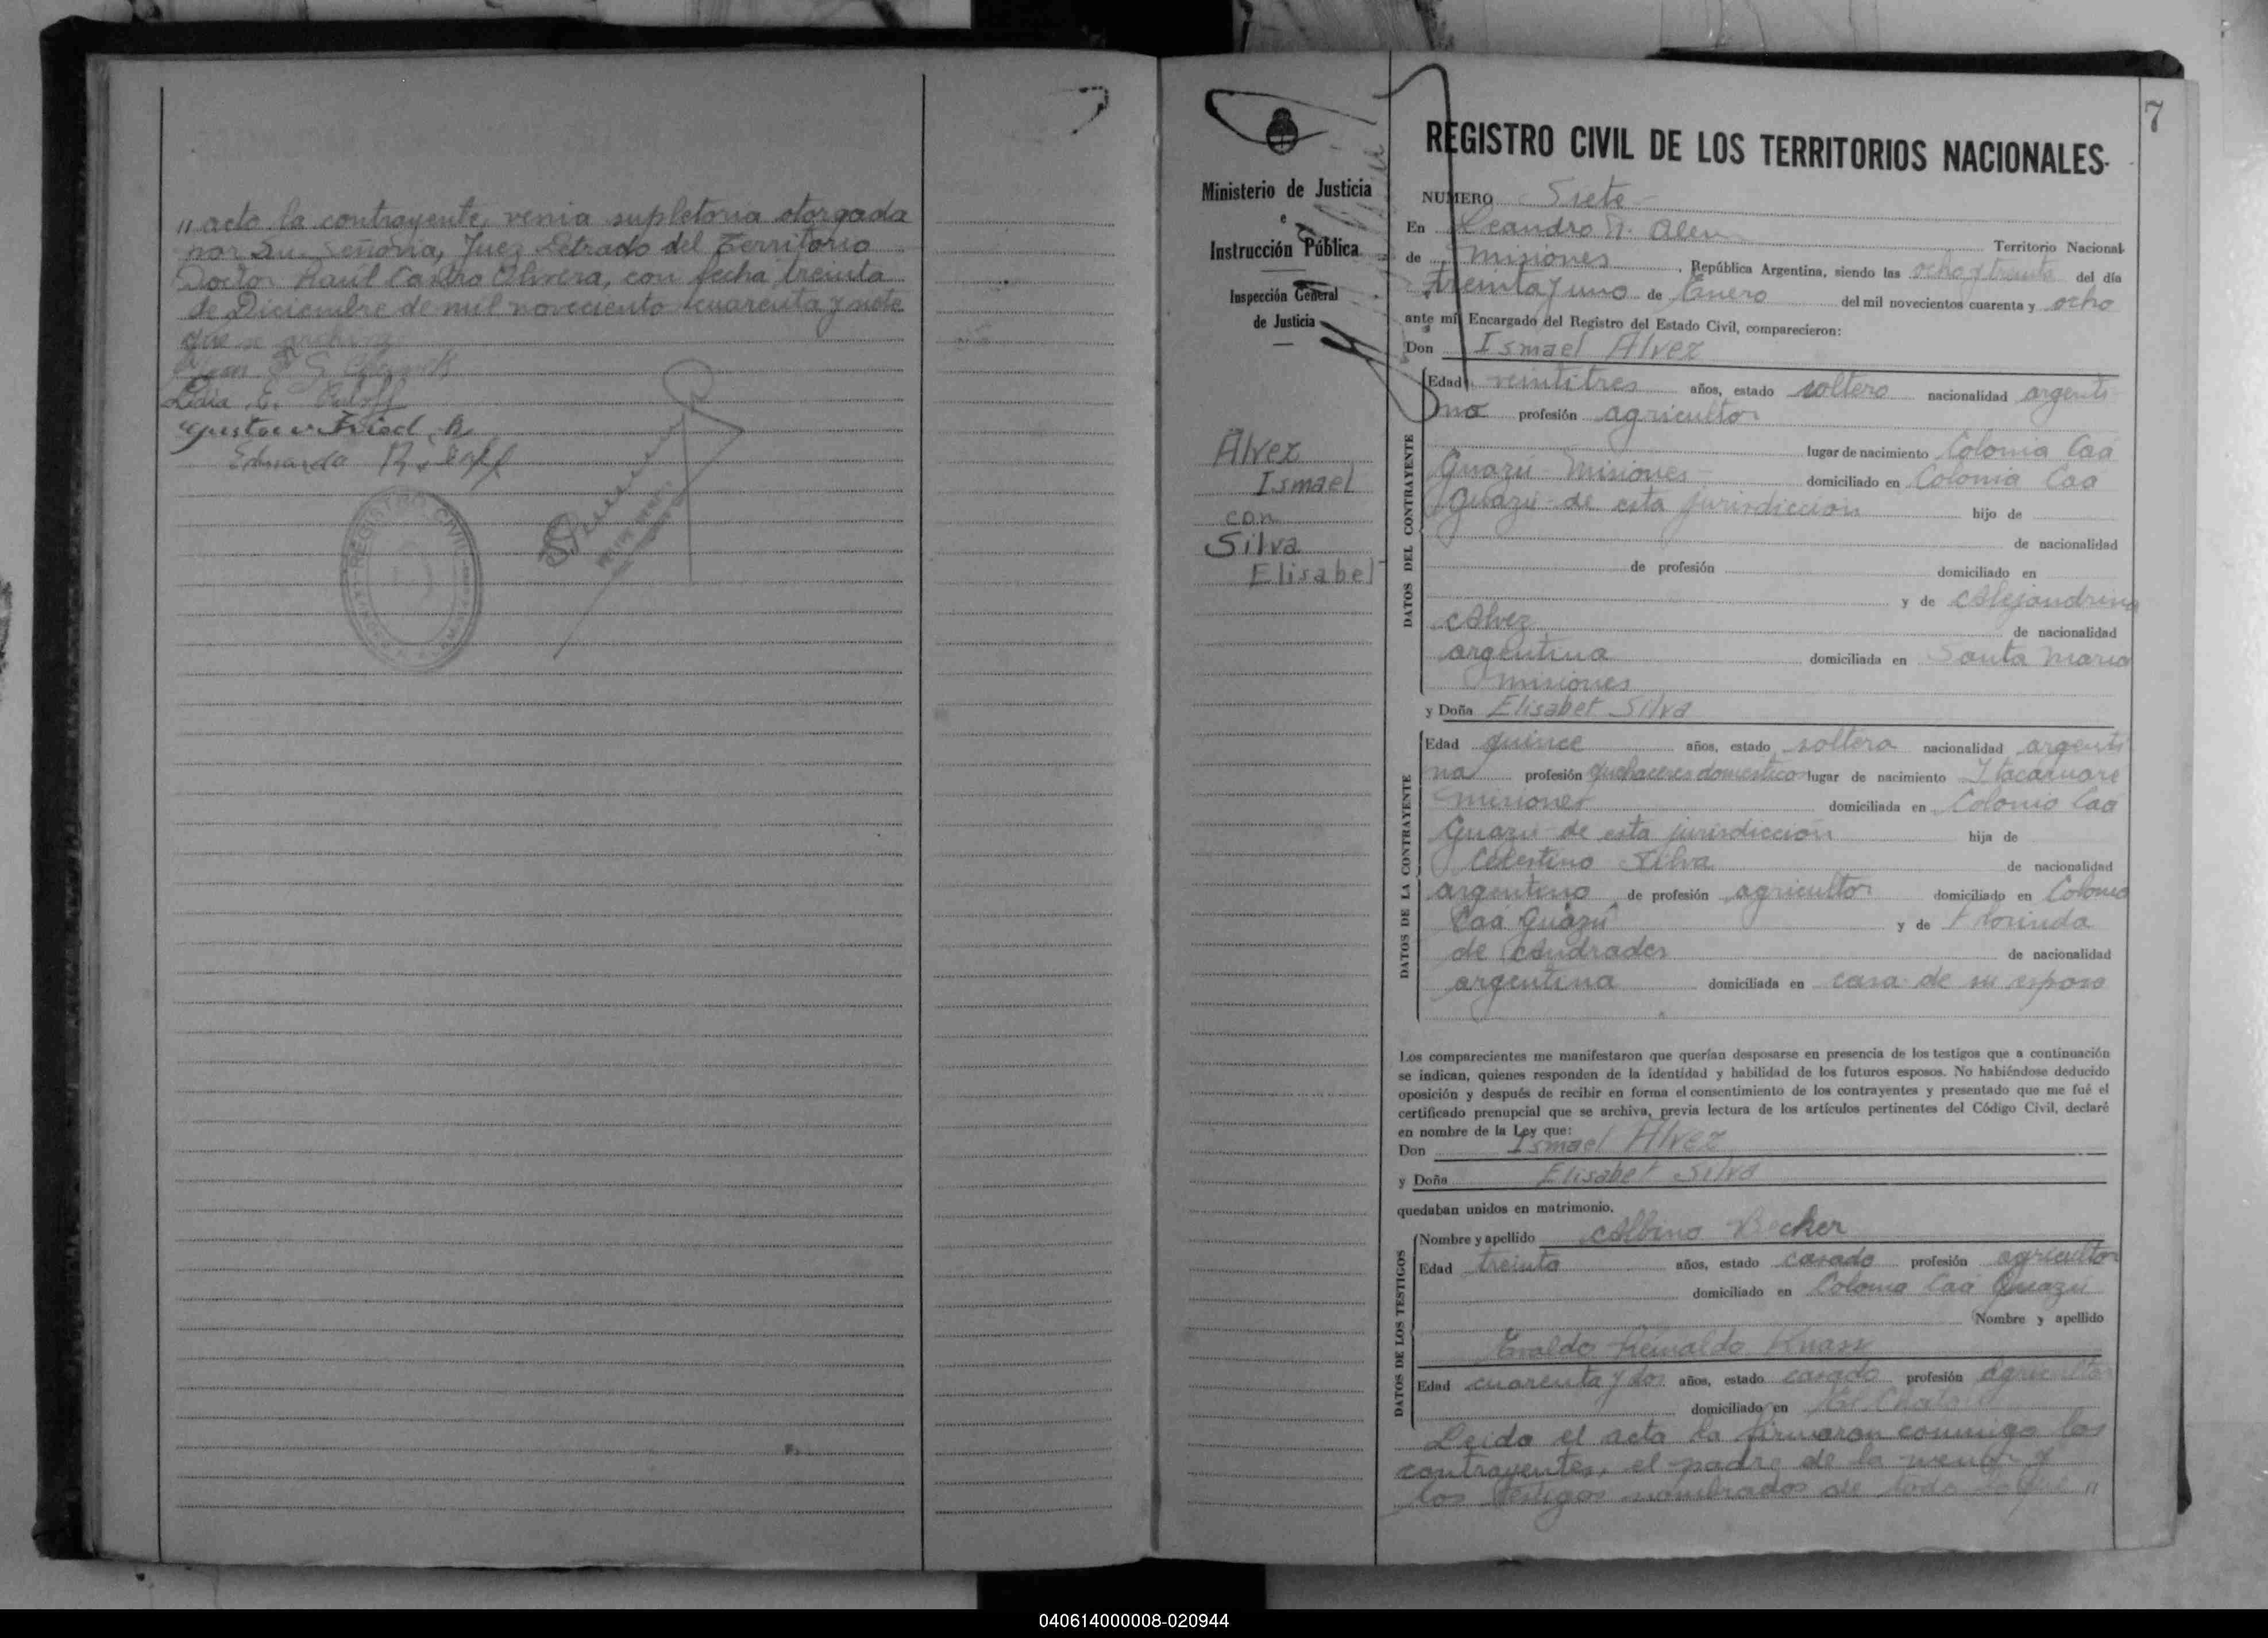 " acto la contrayente, venia supletoria otorgada
por Su Señoria, Juez Letrado del Territorio
Doctor Raúl Castro Olivera, con fecha treinta
de Diciembre de mil noveciento cuarenta y siete
que se archiva
Lidia E.
Gustav Fried
Eduardo
REGISTRO CIVIL
7
Ministerio de Justicia
e
Instrucción Pública
Inspección General
de Justicia
Alvez
Ismael
con
Silva
Elisabet
REGISTRO CIVIL DE LOS TERRITORIOS NACIONALES
NUMERO Siete
En Leandro N. Alem Territorio Nacional
de Misiones, República Argentina, siendo las ocho y treinta del día
treinta y uno de Enero del mil novecientos cuarenta y ocho
ante mí, Encargado del Registro del Estado Civil, comparecieron:
Don Ismael Alvez
DATOS DEL CONTRAYENTE
Edad veintitres años, estado soltero nacionalidad argenti-
no profesión agricultor
lugar de nacimiento Colonia Caá
Guazú - Misiones - domiciliado en Colonia Caá
Guazú de esta jurisdicción hijo de
de nacionalidad
de profesión domiciliado en
y de Alejandrina
Alvez de nacionalidad
argentina domiciliada en Santa Maria
Misiones
y Doña Elisabet Silva
DATOS DE LA CONTRAYENTE
Edad quince años, estado soltera nacionalidad argenti
na profesión quehaceres domestico lugar de nacimiento Itacaruaré
Misiones domiciliada en Colonia Caá
Guazú de esta jurisdicción hija de
Celestino Silva de nacionalidad
argentino de profesión agricultor domiciliado en Colonia
Caá Guazú y de Florinda
de Andrades de nacionalidad
argentina domiciliada en casa de su esposo
Los comparecientes me manifestaron que querían desposarse en presencia de los testigos que a continuación
se indican, quienes responden de la identidad y habilidad de los futuros esposos. No habiéndose deducido
oposición y después de recibir en forma el consentimiento de los contrayentes y presentado que me fué el
certificado prenupcial que se archiva, previa lectura de los artículos pertinentes del Código Civil, declaré
en nombre de la Ley que:
Don Ismael Alvez
y Doña Elisabet Silva
quedaban unidos en matrimonio.
DATOS DE LOS TESTIGOS
Nombre y apellido Albino Becker
Edad treinta años, estado casado profesión agricultor
domiciliado en Colonia Caá Guazú
Nombre y apellido
Evaldo Reinaldo
Edad cuarenta y dos años, estado casado profesión agricultor
domiciliado en
Leída el acta la firmaron conmigo los
contrayentes, el padre de la menor y
los testigos nombrados de todo lo que "
040614000008-020944